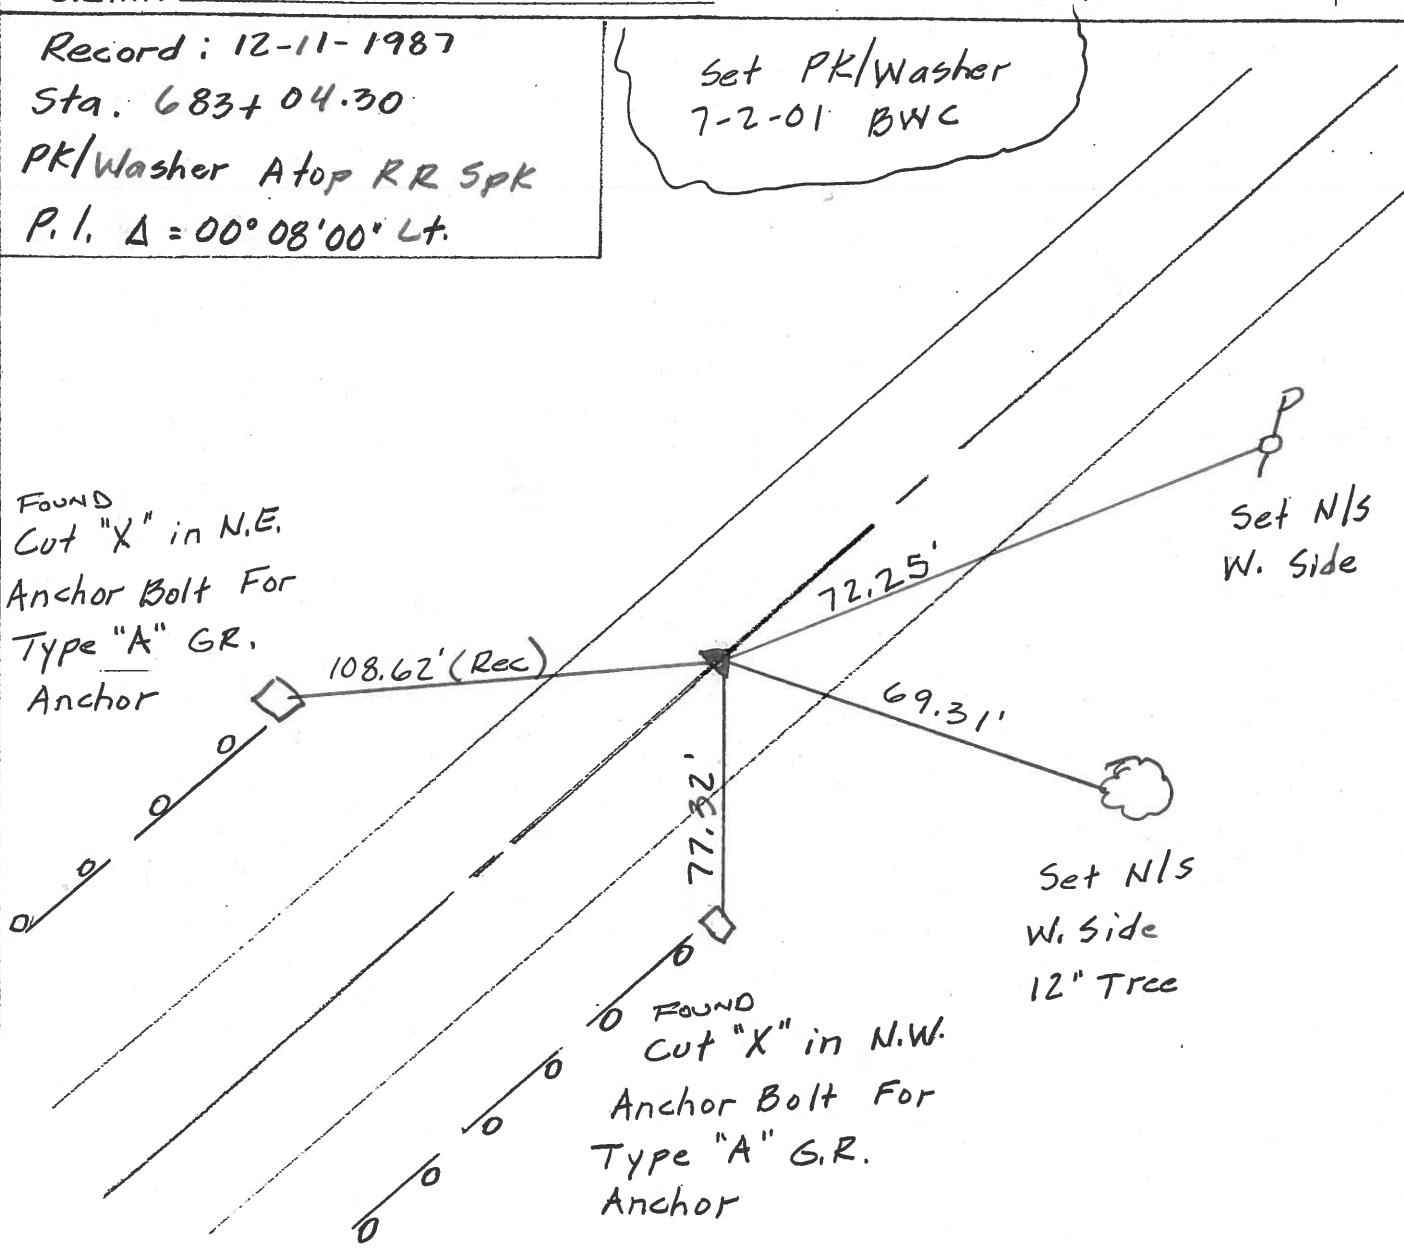 Record: 12-11-1987
Sta. 683+04.30
PK/Washer Atop RR Spk
P.I. Δ = 00° 08' 00" Lt.
Set PK/Washer
7-2-01 BWC
P
Set N/S
W. Side
FOUND
Cut "X" in N.E.
Anchor Bolt For
Type "A" GR.
Anchor
108.62' (Rec)
72.25'
69.31'
77.32'
Set N/S
W. Side
12" Tree
FOUND
Cut "X" in N.W.
Anchor Bolt For
Type "A" G.R.
Anchor